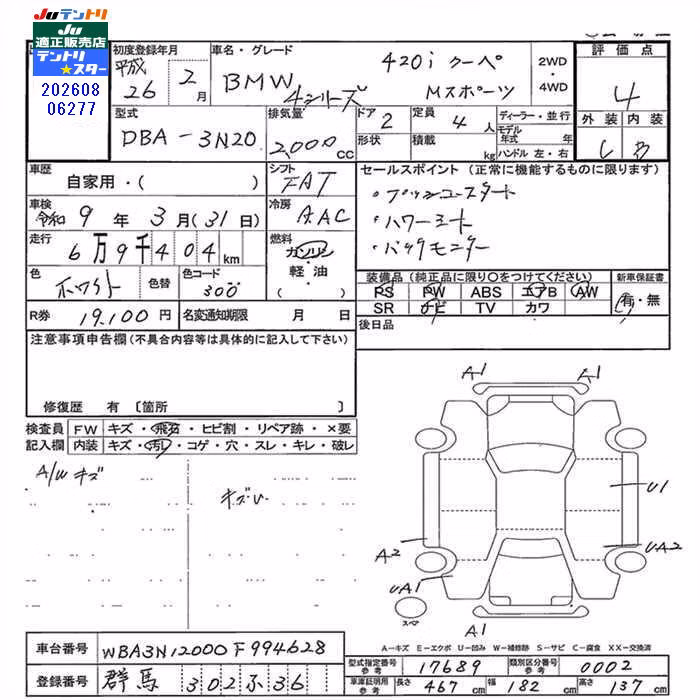 JUテントリ
JU 適正販売店
テントリ
★スター
202608
06277
初度登録年月
平成
26 年 2 月
車名・グレード
BMW 4シリーズ
420i クーペ
Mスポーツ
2WD
・
4WD
評価点
4
外装 内装
C B
型式
DBA-3N20
排気量
2,000 CC
ドア 2
形状
定員 4 人
積載 kg
ディーラー・並行
モデル年式 年
ハンドル 左・右
車歴
自家用・( )
シフト
FAT
セールスポイント (正常に機能するものに限ります)
・プッシュスタート
・パワーシート
・バックモニター
車検
令和 9 年 3 月 (31日)
冷房
AAC
走行
6万9千404 km
燃料
ガソリン
・
軽油
( )
色
ホワイト
色替
色コード
300
装備品 (純正品に限り○をつけてください)
PS PW ABS エアB AW
SR ナビ TV カワ
新車保証書
有・無
R券
19,100円
名変通知期限 月 日
後日品
注意事項申告欄 (不具合内容等は具体的に記入して下さい)
修復歴 有 〔箇所 〕
検査員
記入欄
FW キズ・飛石・ヒビ割・リペア跡・×要
内装 キズ・汚レ・コゲ・穴・スレ・キレ・破レ
A/W キズ
キズU
A1 A1
U1
A2 UA2
UA1
スペア
A1
A-キズ E-エクボ U-凹み W-補修跡 S-サビ C-腐食 XX-交換済
車台番号 WBA3N12000F994628
登録番号 群馬 302 ふ 36
型式指定番号
参考
17689
類別区分番号
参考
0002
車庫証明用
参考
長さ 467 cm 幅 182 cm 高さ 137 cm